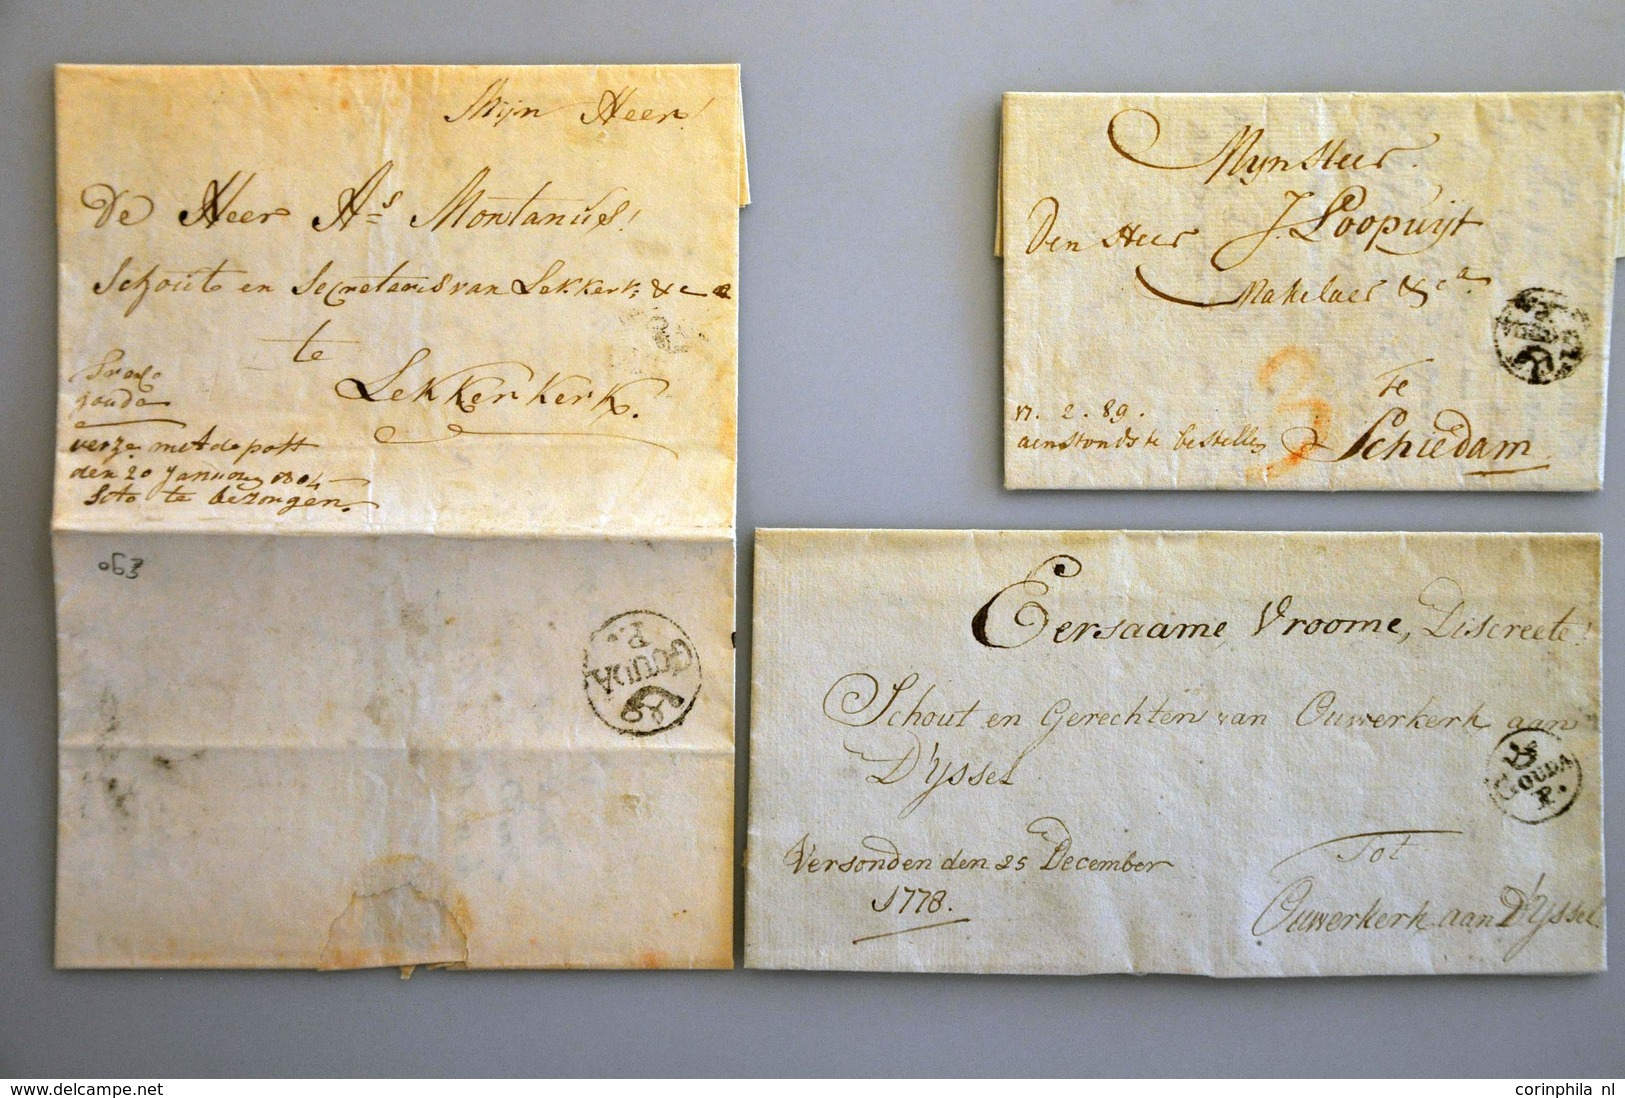 Mijn Heer!
De Heer As Montanus!
Schout en Secretaris van Lekkerk: &ca
te
Lekkerkerk.
gouda
verze met de post
den 20 January 1804
te bezorgen.
063
GOUDA
P.
Mijn Heer
Den Heer J. Loopuijt
Makelaer &ca
Te
Schiedam
17. 2. 89.
te bestellen
3
GOUDA
Eersaame, Vroome, Discreete!
Schout en Gerechten van Ouwerkerk aan
D'yssel
GOUDA
P.
Tot
Ouwerkerk aan D'yssel
Versonden den 25 December
1778.
www.delcampe.net
corinphila nl